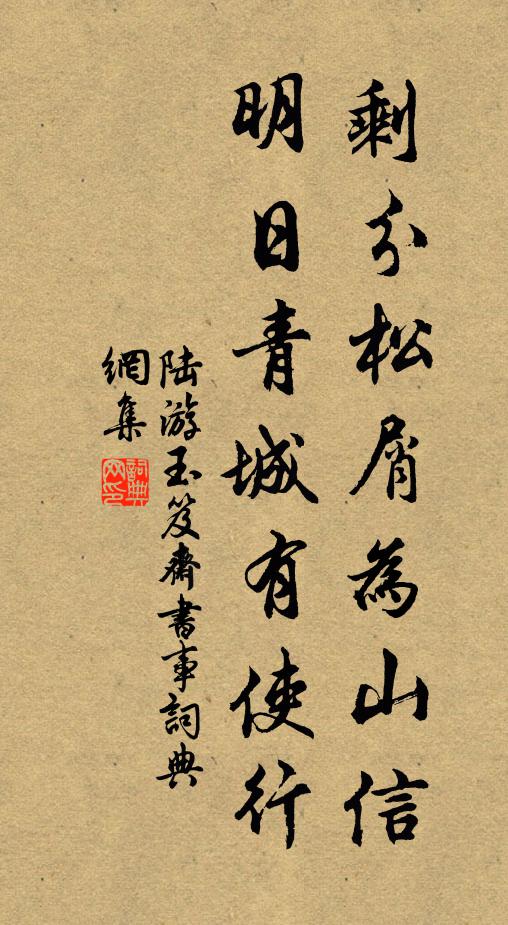 剩分松屑為山信
明日青城有使行
陸游玉笈齋書事詞典
網集
詞典
网印